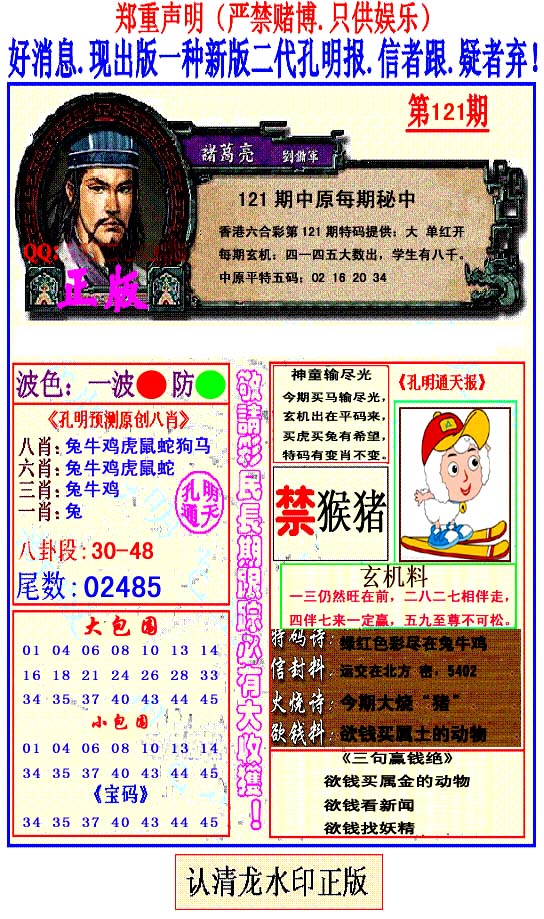 郑重声明（严禁赌博.只供娱乐）
好消息.现出版一种新版二代孔明报.信者跟.疑者弃！
第121期
諸葛亮 劉備軍
121 期中原每期秘中
香港六合彩第 121 期特码提供：大 单红开
每期玄机：四一四五大数出，学生有八千。
中原平特五码：02 16 20 34
QQ:
正版
波色：一波 防
《孔明预测原创八肖》
八肖：兔牛鸡虎鼠蛇狗马
六肖：兔牛鸡虎鼠蛇
三肖：兔牛鸡
一肖：兔
孔明通天
八卦段：30-48
尾数：02485
大包围
01 04 06 08 10 13 14
16 18 21 24 26 28 33
34 35 37 40 43 44 45
小包围
01 04 06 08 10 13 14
34 35 37 40 43 44 45
《宝码》
34 35 37 40 43 44 45
敬請彩民長期跟踪必有大收獲！
神童输尽光
今期买马输尽光，
玄机出在平码来，
买虎买兔有希望，
特码有变肖不变。
《孔明通天报》
禁猴猪
玄机料
一三仍然旺在前，二八二七相伴走，
四伴七来一定赢，五九至尊不可松。
特码诗：绿红色彩尽在兔牛鸡
信封料：运交在北方 密．5402
火烧诗：今期大烧“猪”
欲钱料：欲钱买属土的动物
《三句赢钱绝》
欲钱买属金的动物
欲钱看新闻
欲钱找妖精
认清龙水印正版